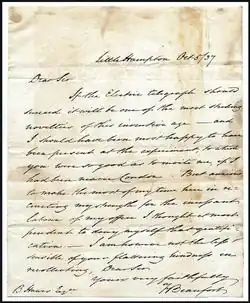 Little Hampton Oct 5/37
Dear Sir
If the Electric telegraph should
succeed it will be one of the most striking
novelties of this inventive age — and
I should have been most happy to have
been present at the experiment to which
you were so good as to invite me if I
had been nearer London. But anxious
to make the most of my time here in re-
cruiting my strength for the incessant
labour of my office I thought it most
prudent to deny myself that gratifi-
cation — I am however not the less
sensible of your flattering kindness in
recollecting, Dear Sir
Yours very faithfully
F Beaufort
B. Hawes Esqr